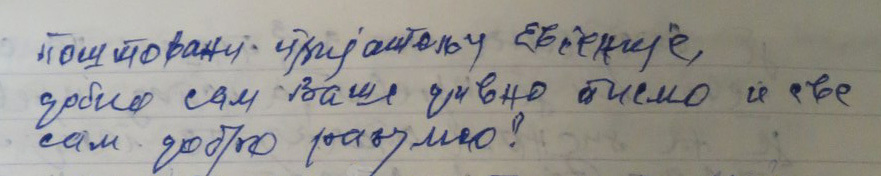 поштовани пријатељу Евгеније,
добио сам Ваше дивно писмо и све
сам добро разумео!